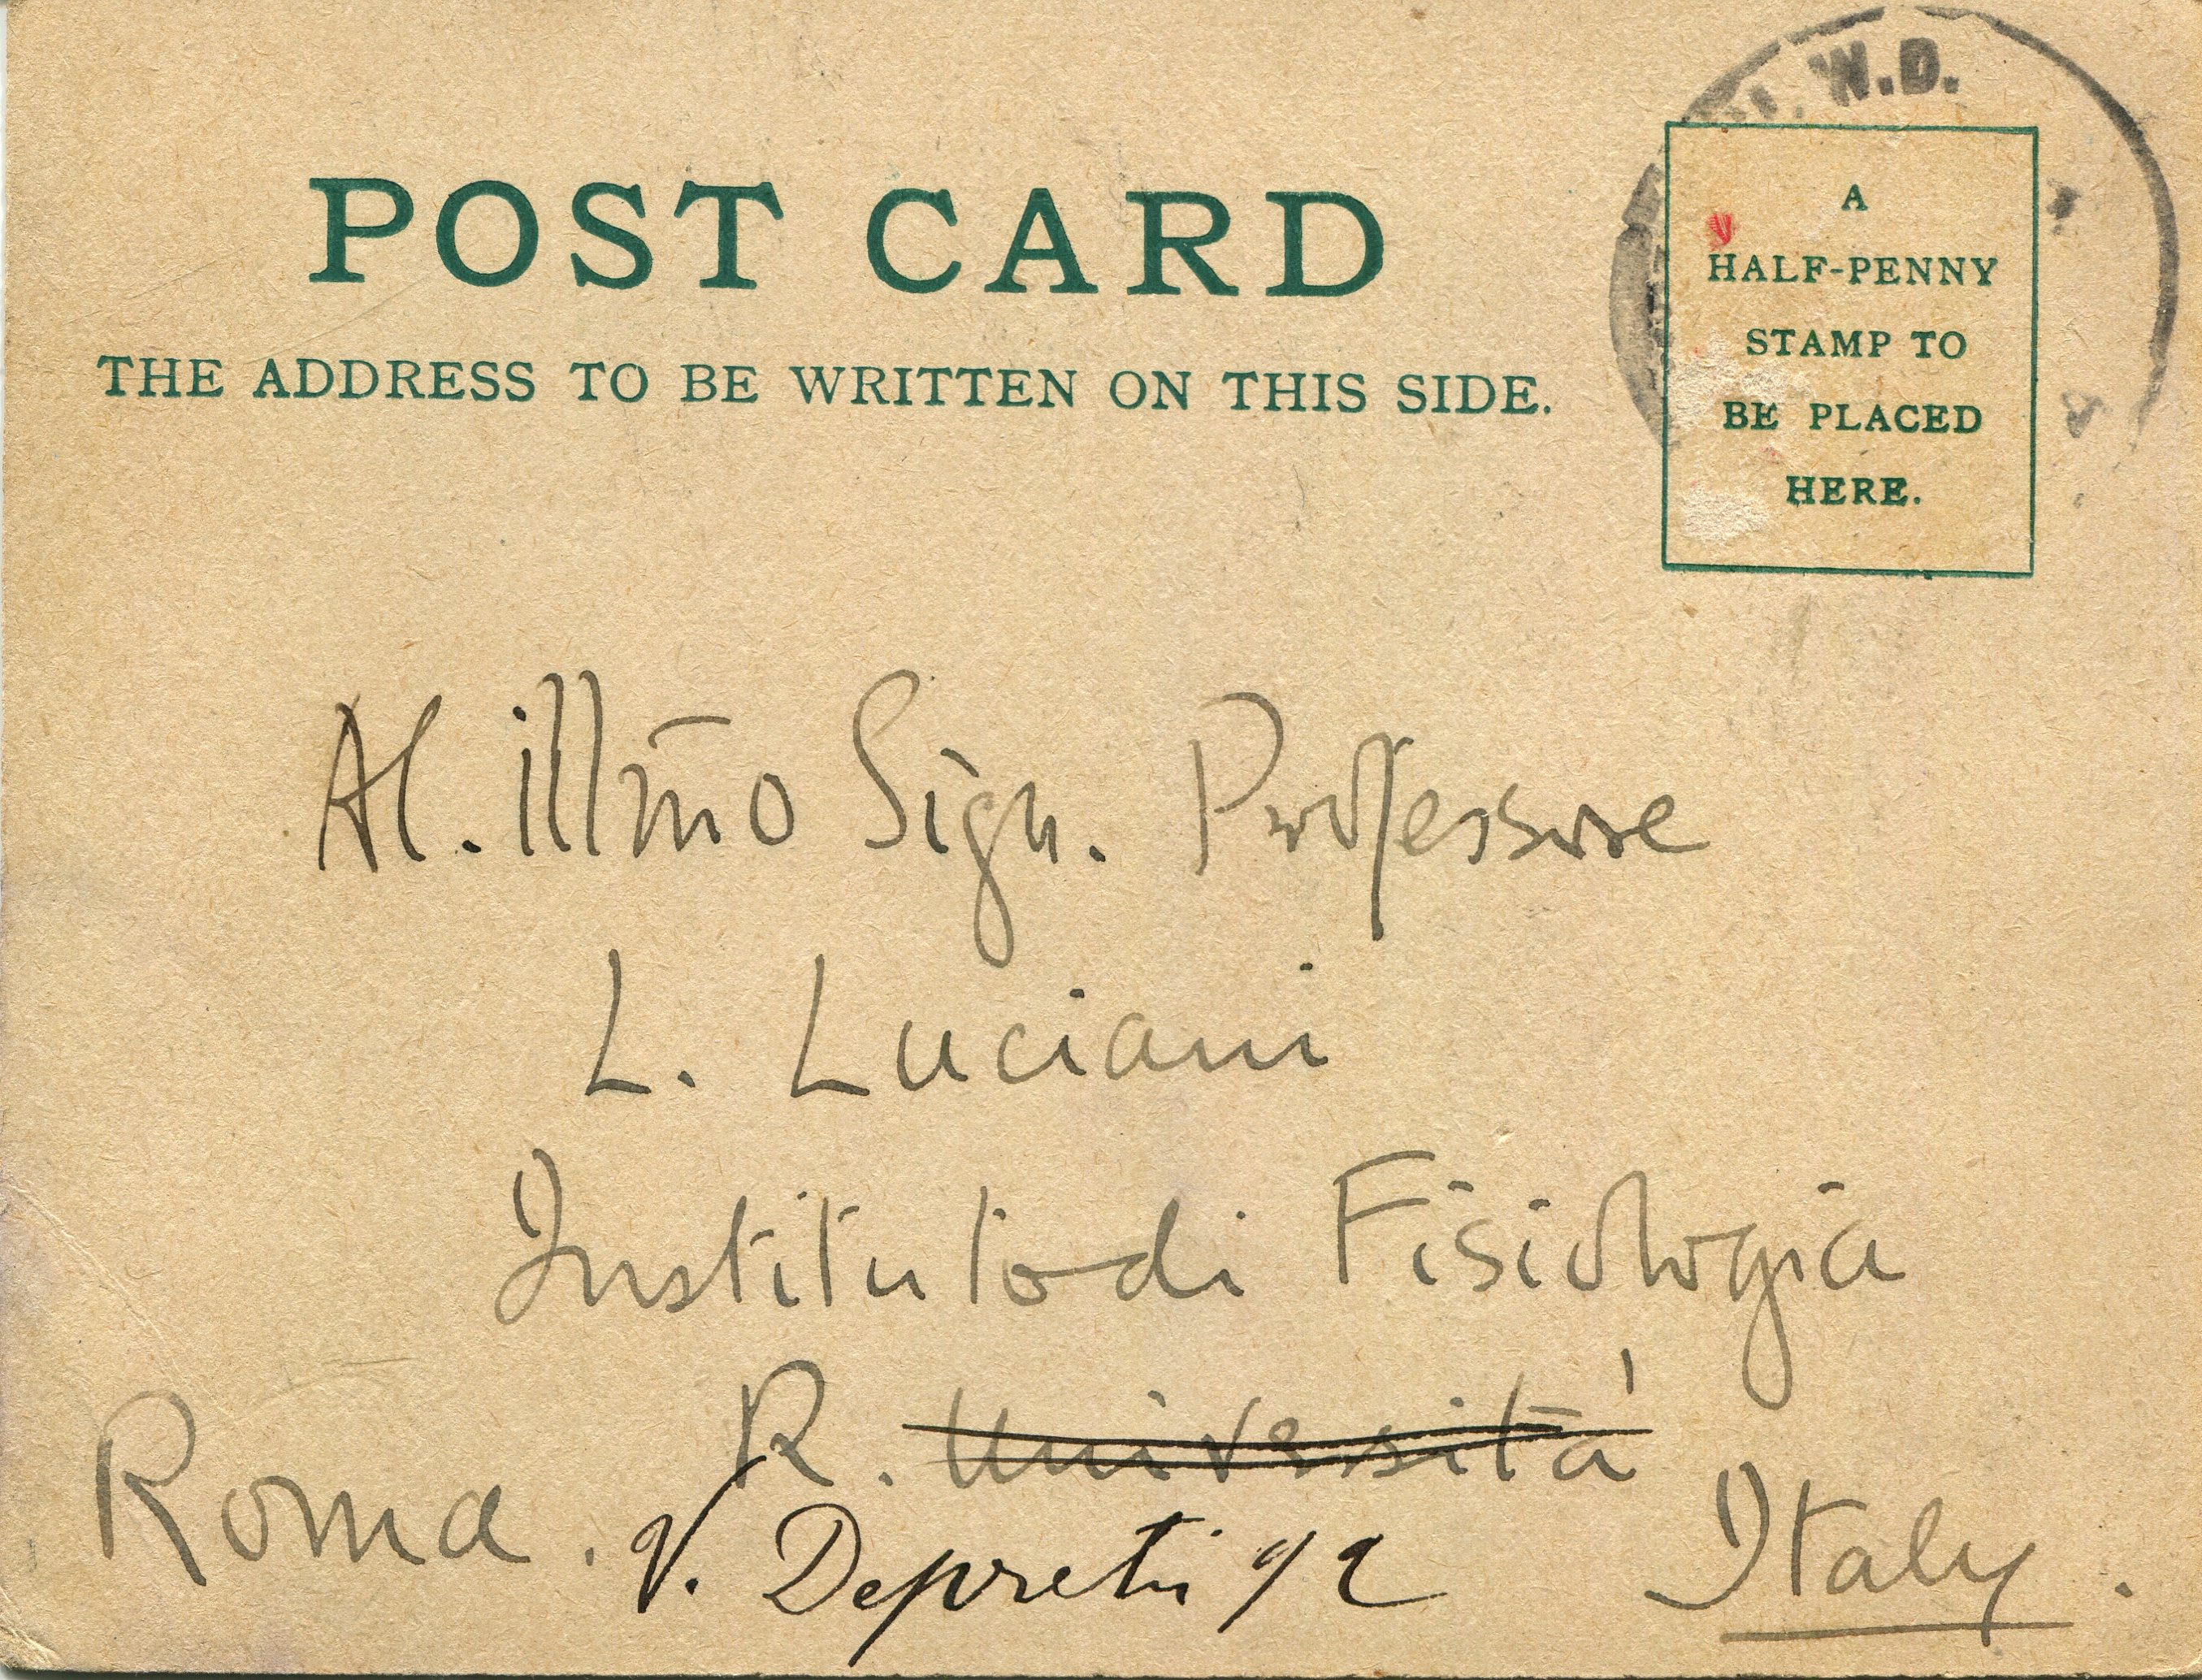 W.D.
POST CARD
THE ADDRESS TO BE WRITTEN ON THIS SIDE.
A
HALF-PENNY
STAMP TO
BE PLACED
HERE.
Al. illm̄o Sign. Professore
L. Luciani
Instituto di Fisiologia
R. Università
Roma. V. Depretis 92 Italy.